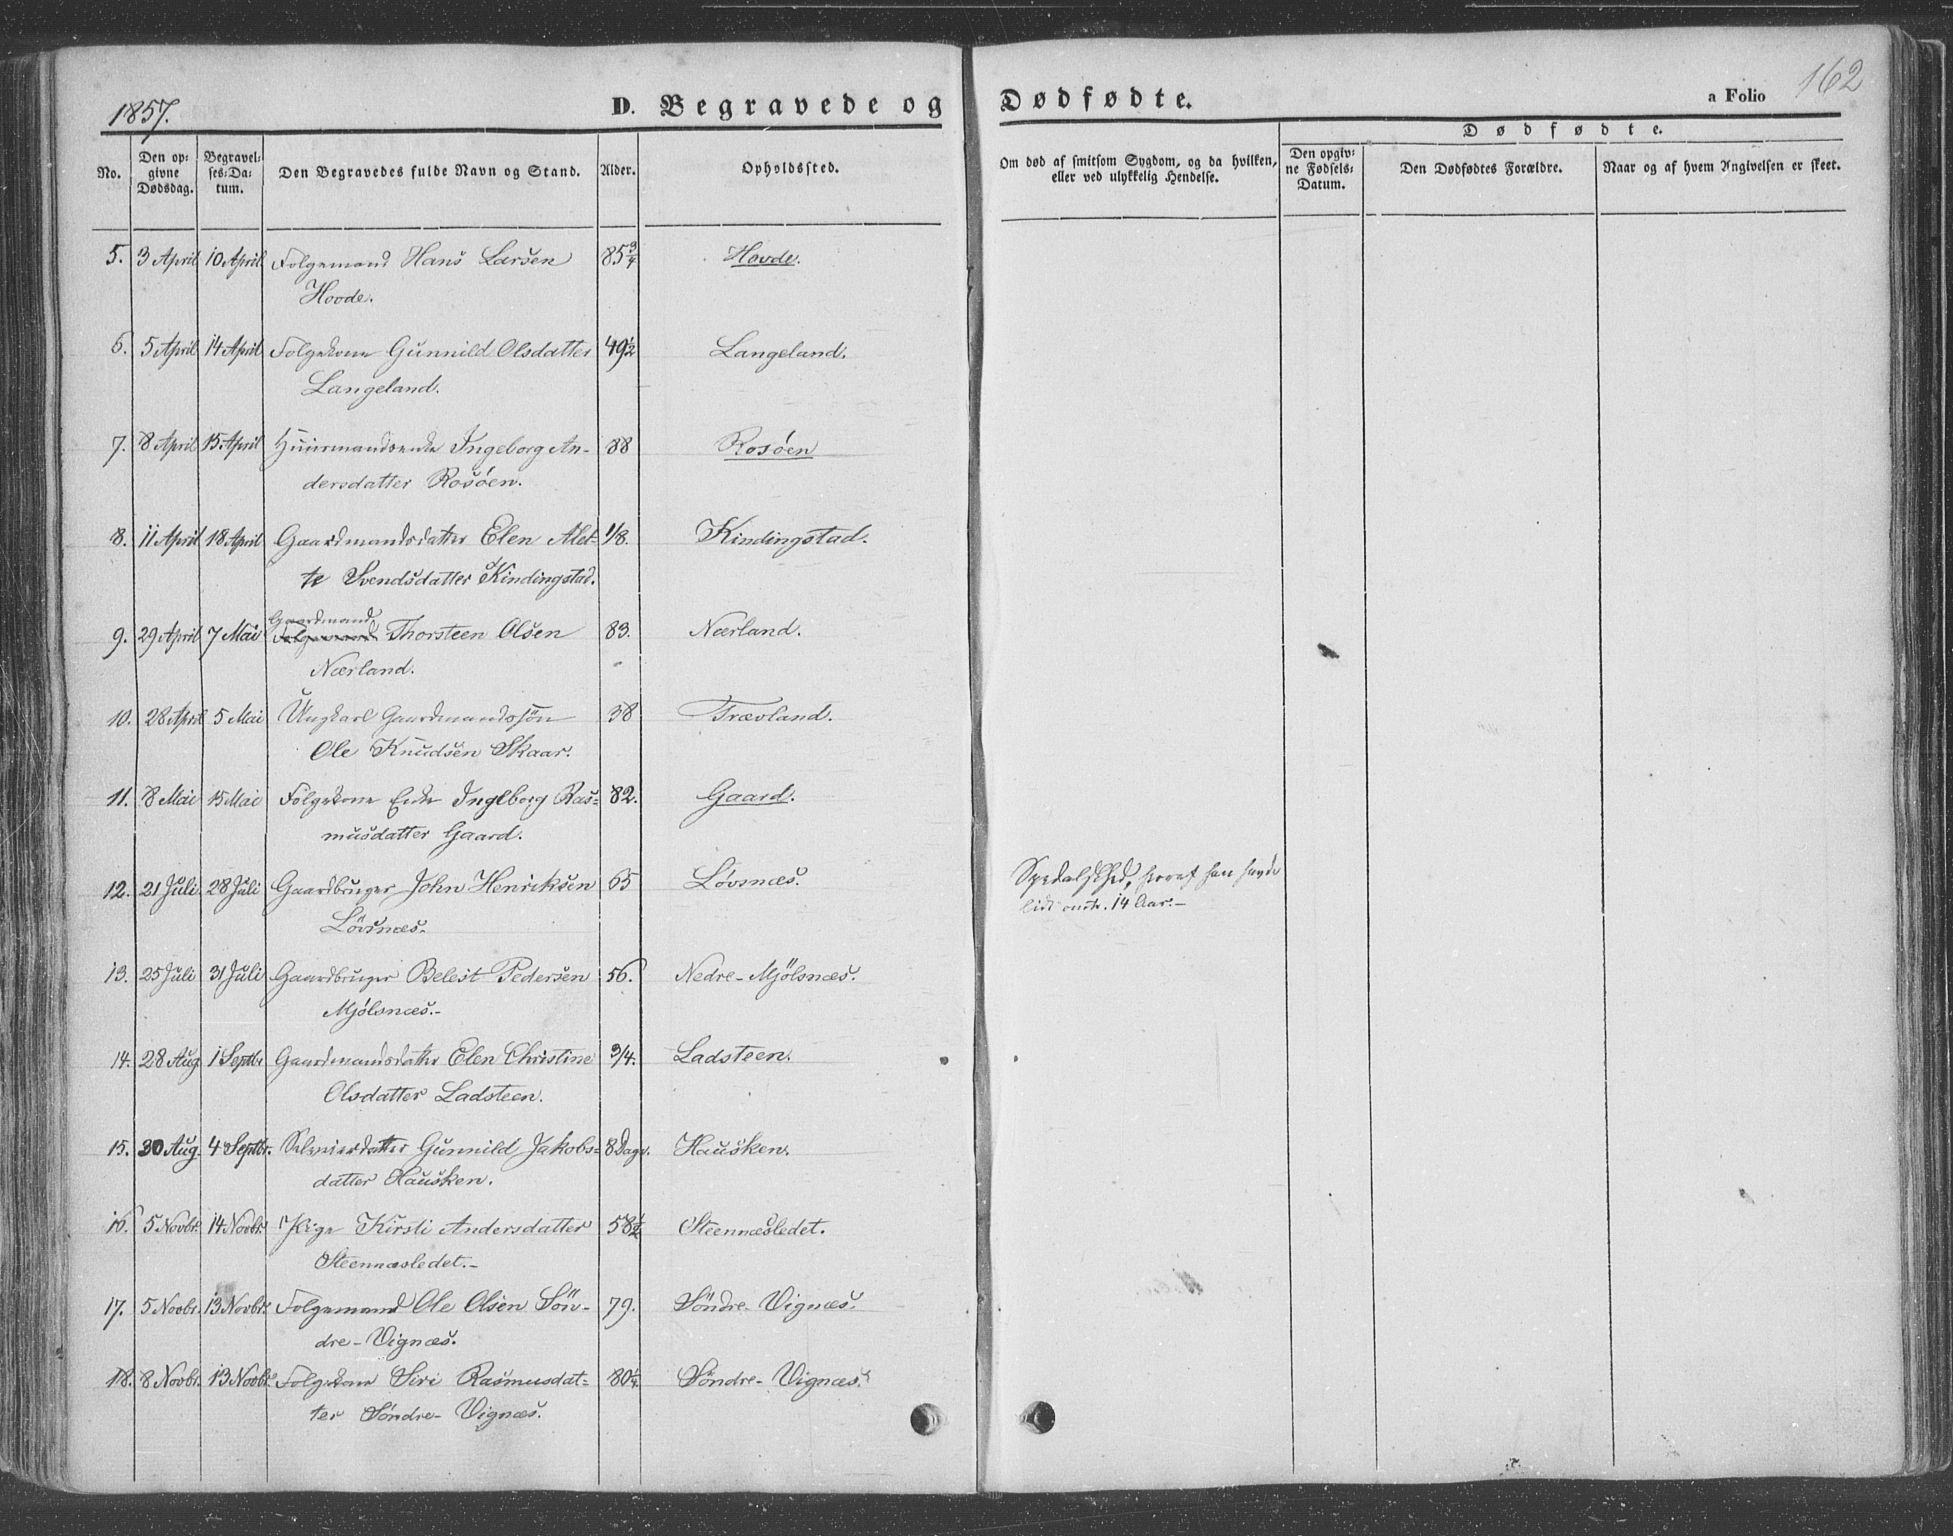 1857.
D. Begravede og Dødfødte.
a Folio 162
No.
Den op-givne Dødsdag.
Begravel-ses-Da-tum.
Den Begravedes fulde Navn og Stand.
Alder.
Opholdssted.
Om død af smitsom Sygdom, og da hvilken, eller ved ulykkelig Hendelse.
Dødfødte.
Den opgiv-ne Fødsels-Datum.
Den Dødfødtes Forældre.
Naar og af hvem Angivelsen er skeet.
5. 3 April 10 April Folgemand Hans Larsen 85 3/4 Hovde.
Hovde.
6. 5 April 14 April Folgekone Gunnild Olsdatter 49 1/2 Langeland.
Langeland.
7. 8 April 15 April Huusmandsenke Ingeborg An- 88 Rosøen
dersdatter Rosøen.
8. 11 April 18 April Gaardmandsdatter Elen Alet- 1/8. Kindingstad.
te Svendsdatter Kindingstad.
Gaardmand
9. 29 April 7 Mai Folgemand Thorsteen Olsen 83. Nærland.
Nærland.
10. 28 April 5 Mai Ungkarl Gaardmandssøn 38 Trævland.
Ole Knudsen Skaar.
11. 8 Mai 15 Mai Folgekone Enke Ingeborg Ras- 82. Gaard.
musdatter Gaard.
12. 21 Juli 28 Juli Gaardbruger John Henriksen 65 Løvsnæs. Spedalskhed, hvoraf han havde
Løvsnæs. lidt omtr. 14 Aar.-
13. 25 Juli 31 Juli Gaardbruger Belest Pedersen 56. Nedre-Mjølsnæs.
Mjølsnæs.-
14. 28 Aug 1 Septbr Gaardmandsdatter Elen Christine 3/4. Ladsteen.
Olsdatter Ladsteen.
15. 30 Aug. 4 Septbr. Gunnild Jakobs- 8 Dage. Hausken.
datter Hausken.
16. 5 Novbr. 14 Novbr. Pige Kirsti Andersdatter 58 1/2 Steennæsledet.
Steennæsledet.-
17. 5 Novbr. 13 Novbr. Folgemand Ole Olsen Søn- 79. Søndre-Vignæs.
dre-Vignæs.
18. 8 Novbr. 13 Novbr. Folgekone Siri Rasmusdat- 80 1/4. Søndre-Vignæs.
ter Søndre-Vignæs.